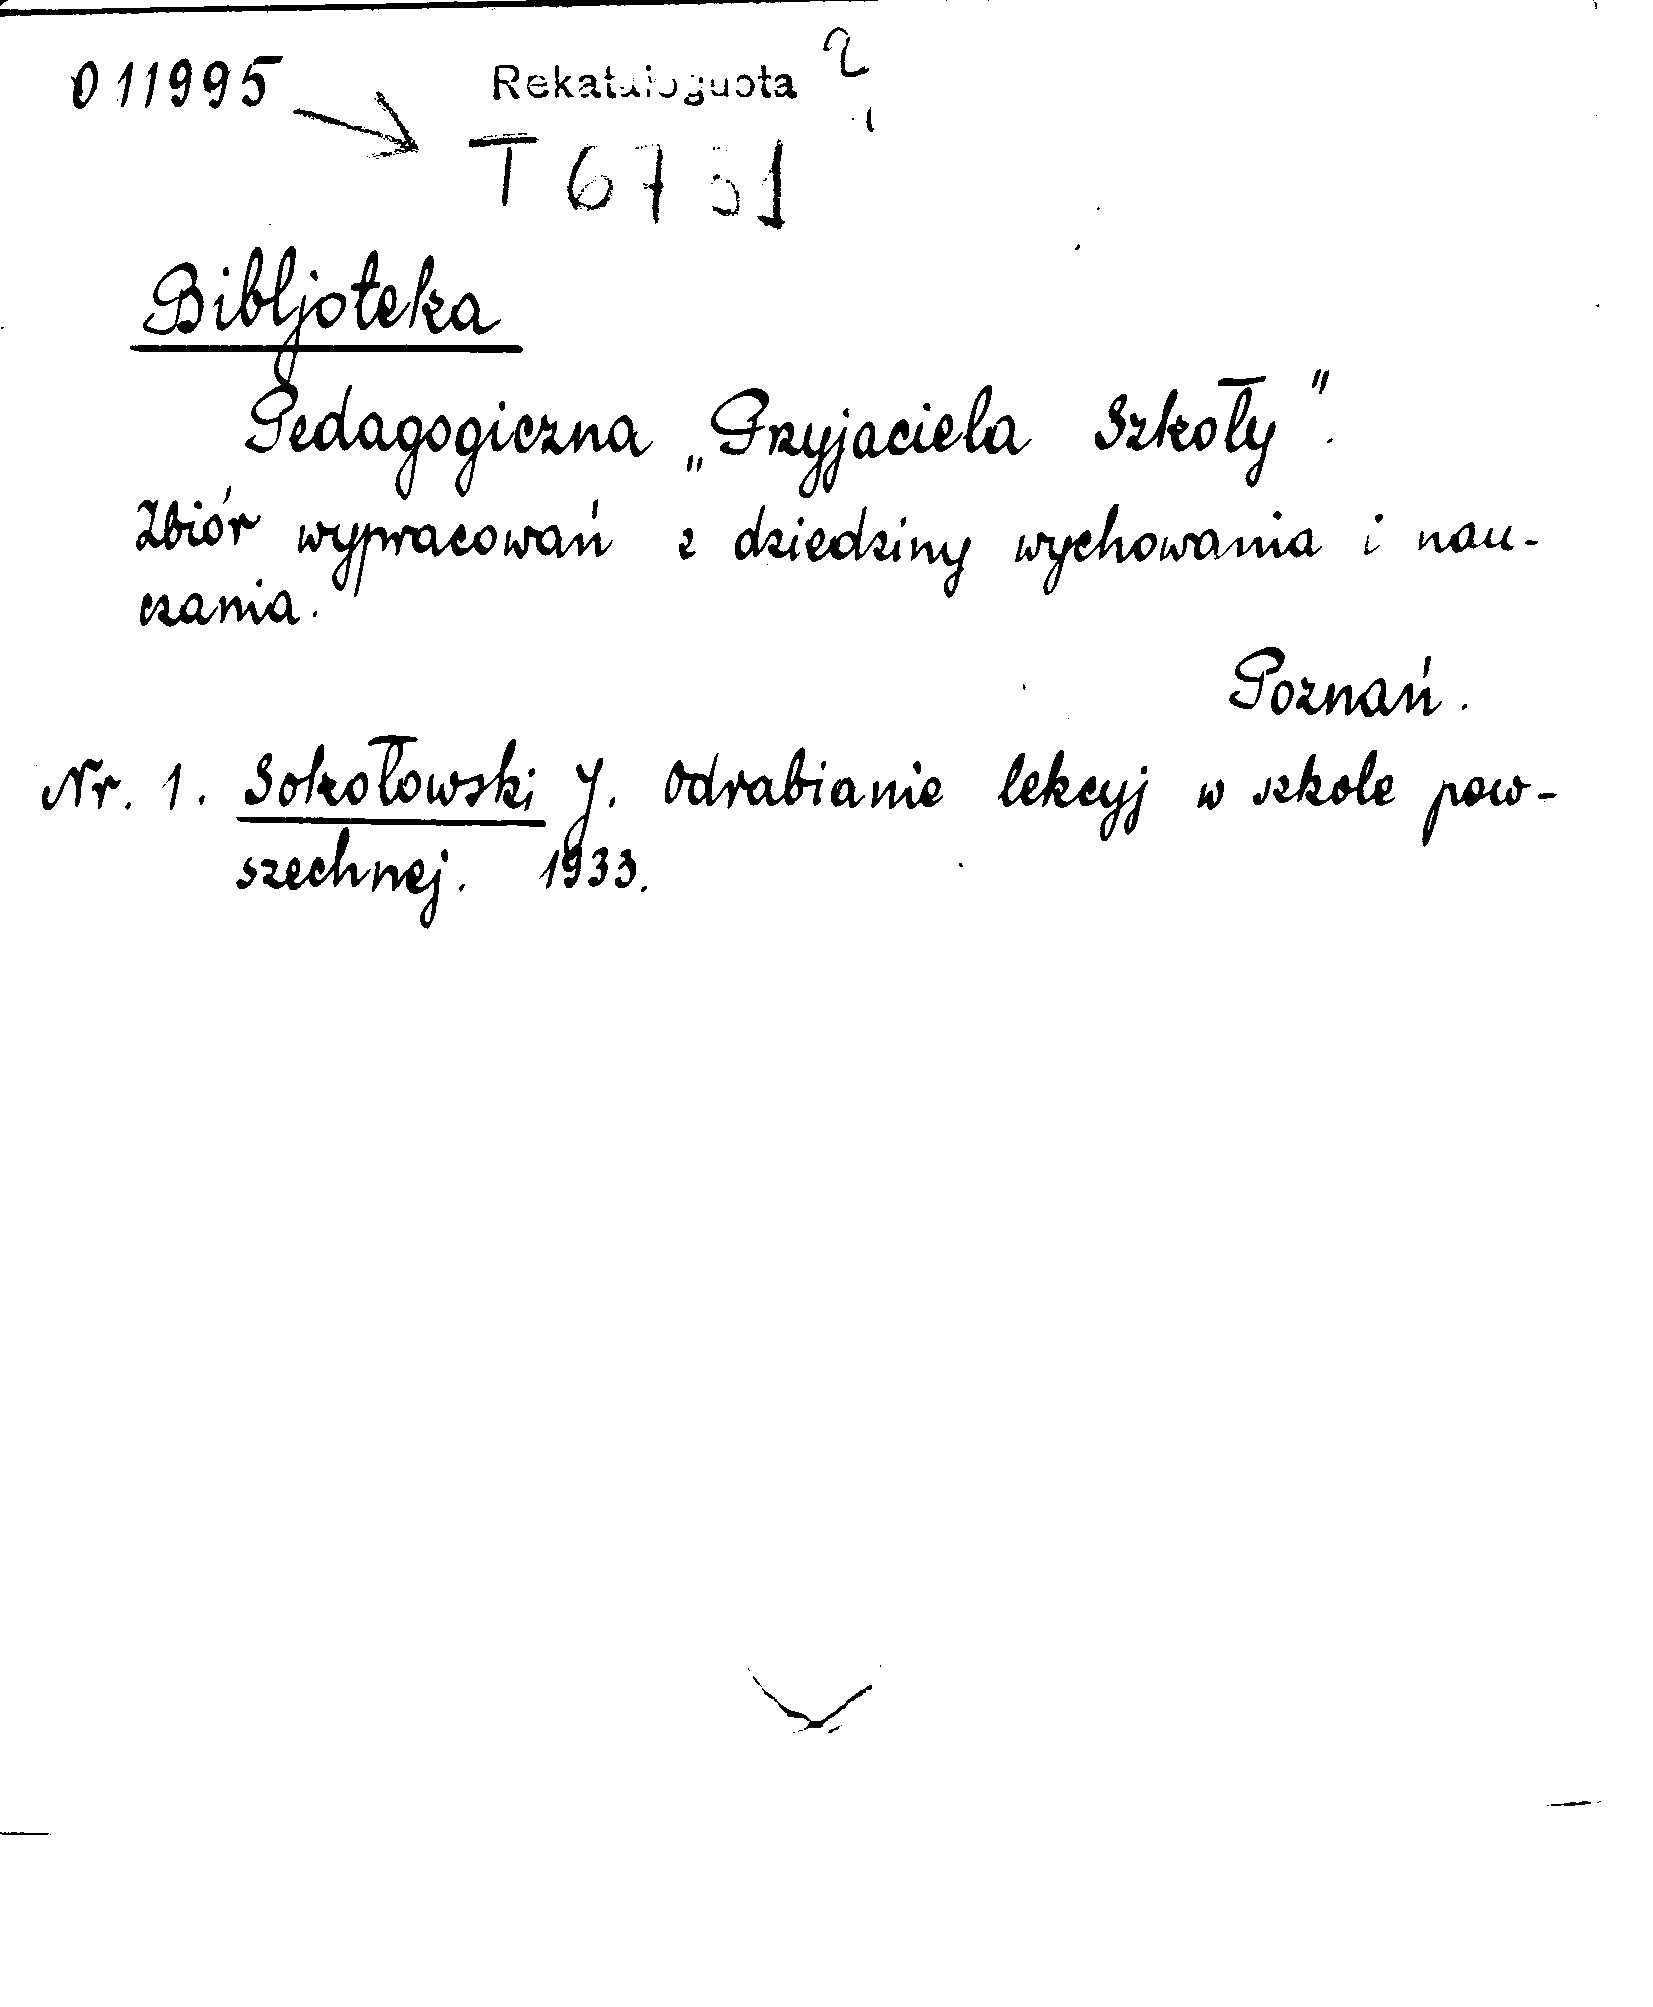 011995 Rekataloguota
T 6751
Bibljoteka
Pedagogiczna „Przyjaciela Szkoły”.
Zbiór wypracowań z dziedziny wychowania i nau-
czania.
Poznań.
Nr. 1. Sokołowski J. Odrabianie lekcyj w szkole pow-
szechnej. 1933.